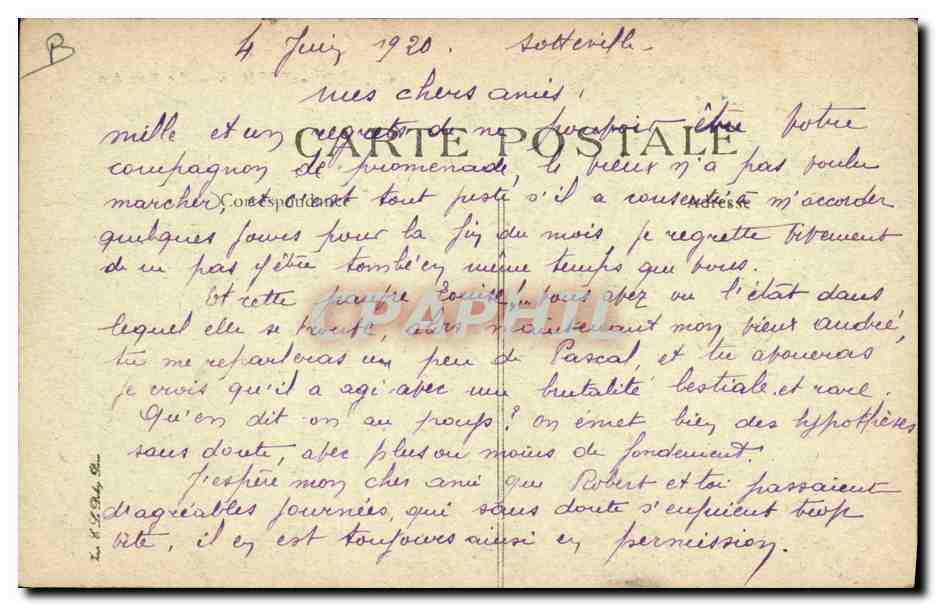 B
4 Juin 1920. Sotteville.
Mes chers amis,
mille et un regrets de ne pouvoir être votre
CARTE POSTALE
compagnon de promenade, le vieux n'a pas voulu
Correspondance
Adresse
marcher, et c'est tout juste s'il a consenti à m'accorder
quelques jours pour la fin du mois. je regrette vivement
de ne pas être tombé en même temps que vous.
CPAPHIL
Et cette pauvre Louise! vous avez vu l'état dans
lequel elle se trouve, alors maintenant mon vieux andré,
tu me reparleras un peu de Pascal, et tu avoueras
je crois qu'il a agi avec une brutalité bestiale et rare.
Qu'en dit-on au pays? on émet bien des hypothèses
sans doute, avec plus ou moins de fondement.
J'espère mon cher ami que Robert et toi passaient
d'agréables journées, qui sans doute s'enfuient trop
vite, il en est toujours ainsi en permission.